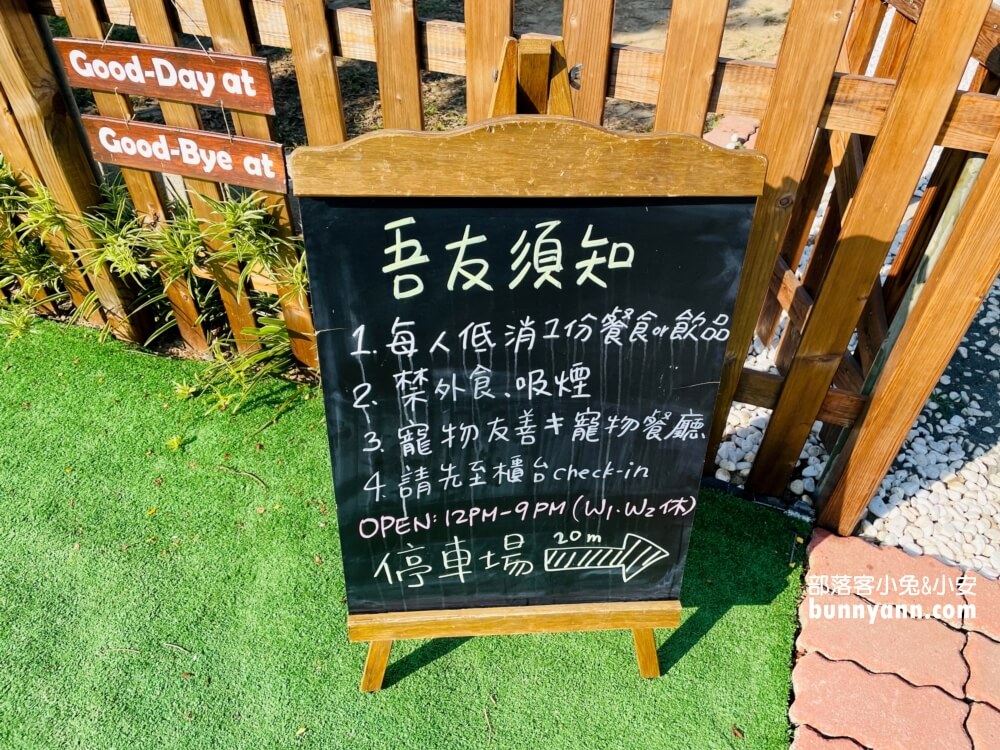 Good-Day at
Good-Bye at
吾友須知
1. 每人低消1份餐食or飲品
2. 禁外食、吸煙
3. 寵物友善≠寵物餐廳
4. 請先至櫃台check-in
OPEN: 12PM-9PM (W1.W2休)
停車場 20m
部落客小兔&小安
bunnyann.com